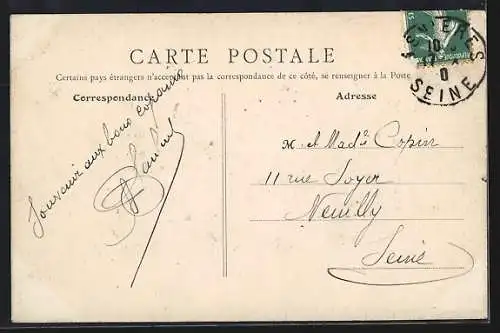 CARTE POSTALE
Certains pays étrangers n'acceptent pas la correspondance de ce côté, se renseigner à la Poste
Correspondance
Adresse
Souvenir aux bons copains
M. et Made Copin
11 rue Soyer
Neuilly
Seine
10
0
SEINE